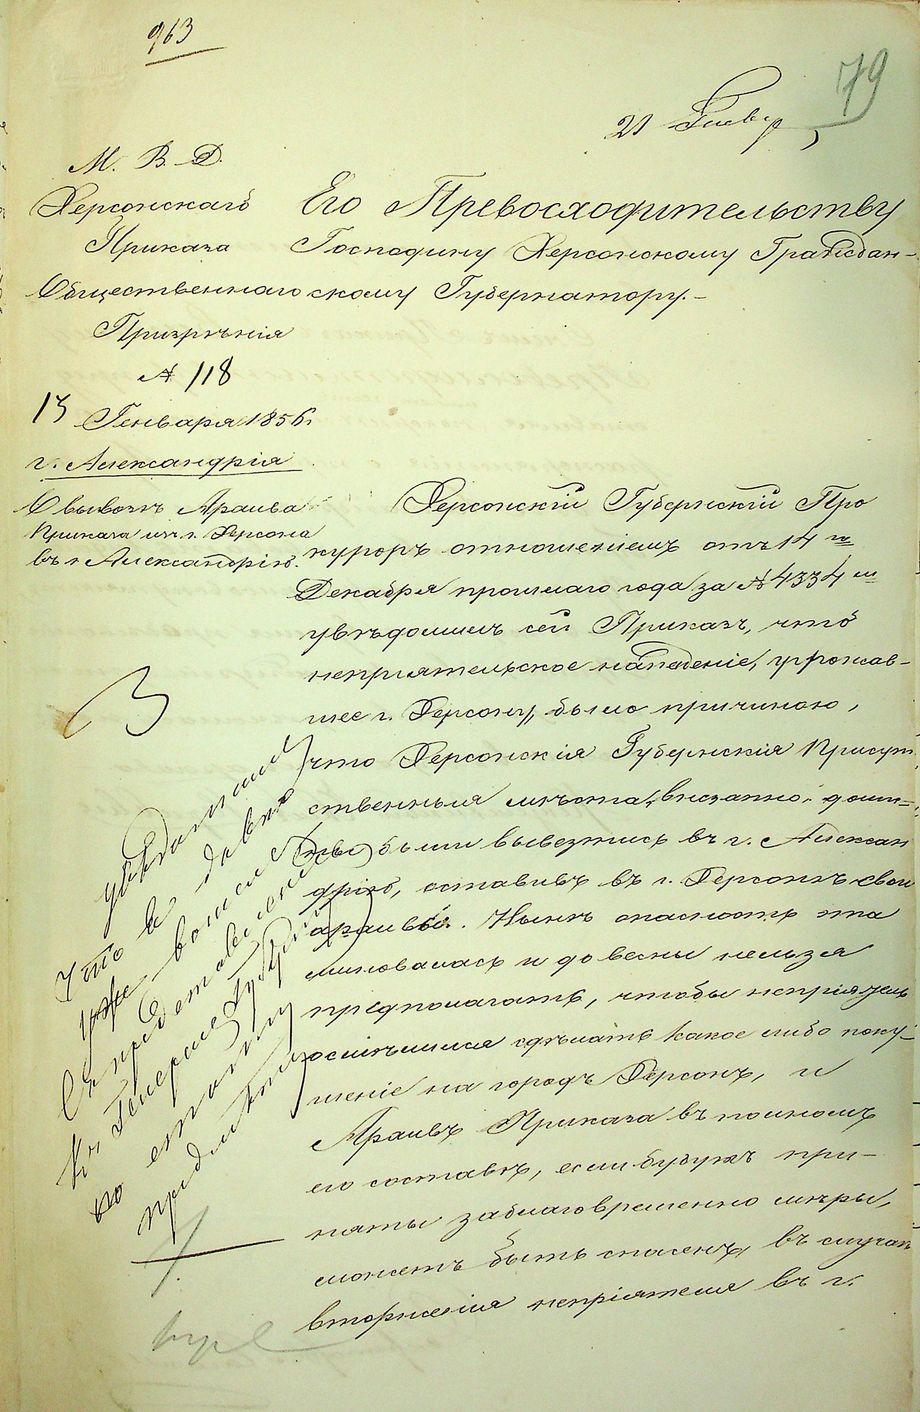 963
79
21 Генвар
М. В. Д.
Херсонскаго
Приказа
Общественнаго
Призрѣнія
№ 118
13 Генваря 1856.
г. Александрія
О вывозѣ Архива
Приказа изъ г. Херсона
въ г. Александрію.
Его Превосходительству
Господину Херсонскому Граждан-
скому Губернатору.-
Херсонскій Губернскій Про
куроръ отношеніемъ отъ 14 го
Декабря прошлаго года за № 4334 м
увѣдомилъ сей Приказъ, что
непріятельское нападеніе, угрожав-
шее г. Херсону, было причиною,
что Херсонскія Губернскія Присут
ственныя мѣста, внезапно
были вывезтись въ г. Алексан
дрію, оставивъ въ г. Херсонѣ свои
архивы. Нынѣ опасность эта
миновалась и до весны нельзя
предполагать, чтобы непріятель
осмѣлился сдѣлать какое либо поку
шеніе на городъ Херсонъ, и
Архивъ Приказа въ полномъ
его составѣ, если будутъ при-
няты заблаговременно мѣры,
можетъ быть спасенъ, въ случаѣ
вторженія непріятеля въ г.
Увѣдомить
что
уже вошли
съ представленіемъ
къ Генералъ Губер
по этому
предмету